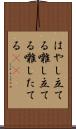 はやし立て
る囃し立て
る囃したて
る